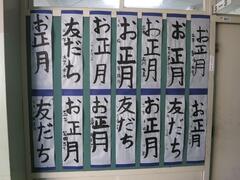 お正月
友だち
お正月
お正月
お正月
お正月
お正月
友だち
お正月
お正月
友だち
お正月
友だち
お正月